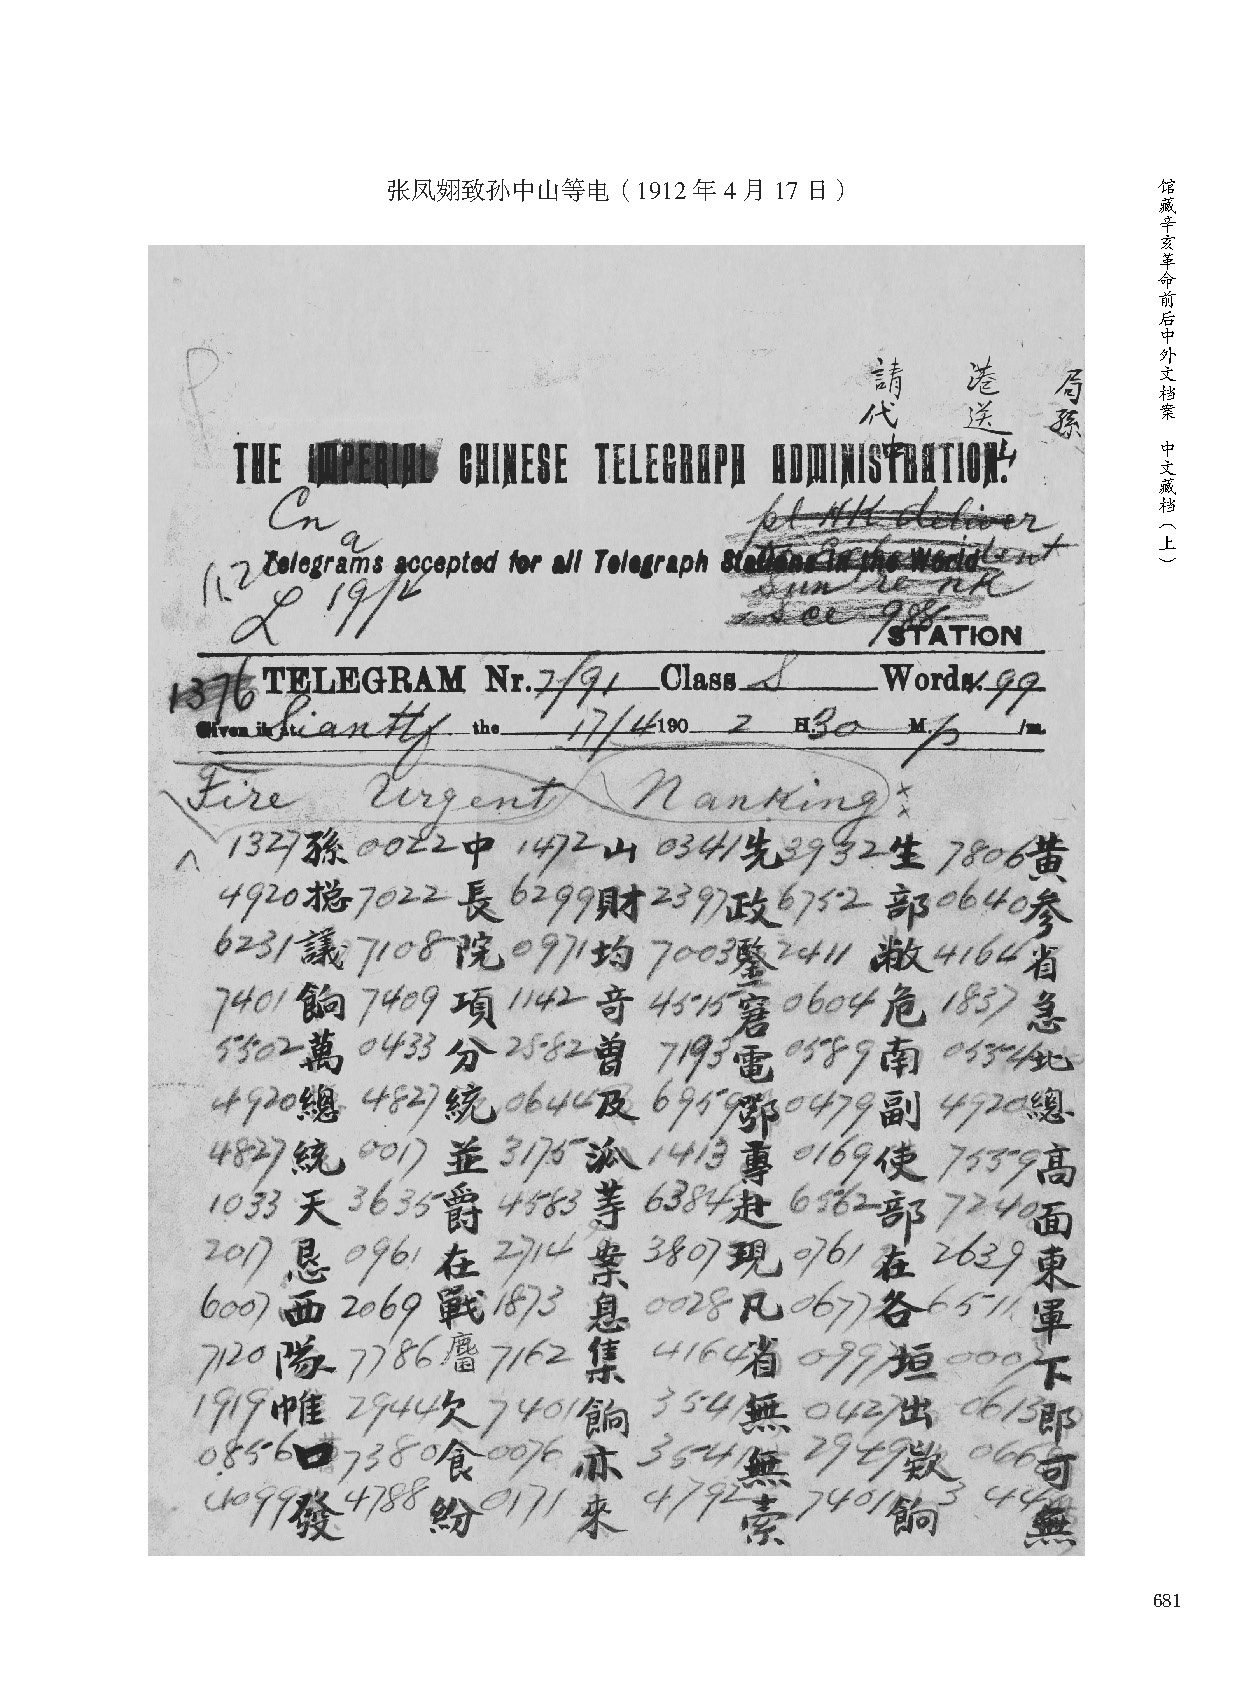 张凤翙致孙中山等电（1912 年 4 月 17 日）
馆藏辛亥革命前后中外文档案 中文藏档（上）
局孫
港送山
請代中
THE IMPERIAL CHINESE TELEGRAPH ADMINISTRATION.
Cn
a
pl NK deliver
Telegrams accepted for all Telegraph Stations in the World
L 19/2
Sun re NK
Sce 988
STATION
1376 TELEGRAM Nr. 7/91 Class S Words. 199
Given in at Sianfu the 17/4 190 2 H. 30 M. p /m.
Fire Urgent Nanking
1327 孫 0022 中 1472 山 0341 先 3932 生 7806 黃
4920 揔 7022 長 6299 財 2397 政 6752 部 0640 參
6231 議 7108 院 0971 均 7003 鑒 2411 敝 4164 省
7401 餉 7409 項 1142 奇 4515 窘 0604 危 1837 急
5502 萬 0433 分 2582 曾 7193 電 0589 南 0554 北
4920 總 4827 統 0644 及 6959 鄂 0479 副 4920 總
4827 統 0017 並 3175 派 1413 專 0169 使 7559 高
1033 天 3635 爵 4583 等 6384 赴 6562 部 7240 面
2017 恳 0961 在 2714 案 3807 現 0761 在 2639 東
6007 西 2069 戰 1873 息 0028 凡 0677 各 6511 軍
7120 隊 7786 麕 7162 集 4164 省 0997 垣 0007 下
1919 帷 2944 欠 7401 餉 3541 無 0427 出 0613 即
0856 口 7380 食 0076 亦 3541 無 2949 欵 066 可
4099 發 4788 紛 0171 來 4792 索 7401 餉 3 44 無
681